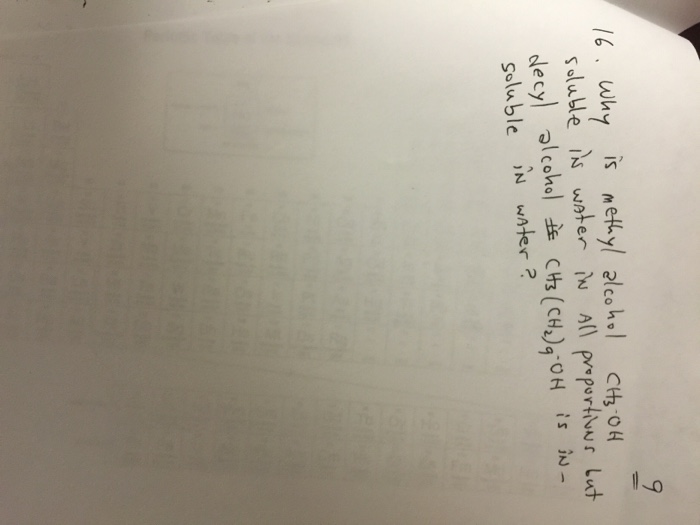 9
16. Why is methyl alcohol CH3-OH
soluble in water in All proportions but
decyl alcohol is CH3(CH2)9-OH is in-
soluble in water?